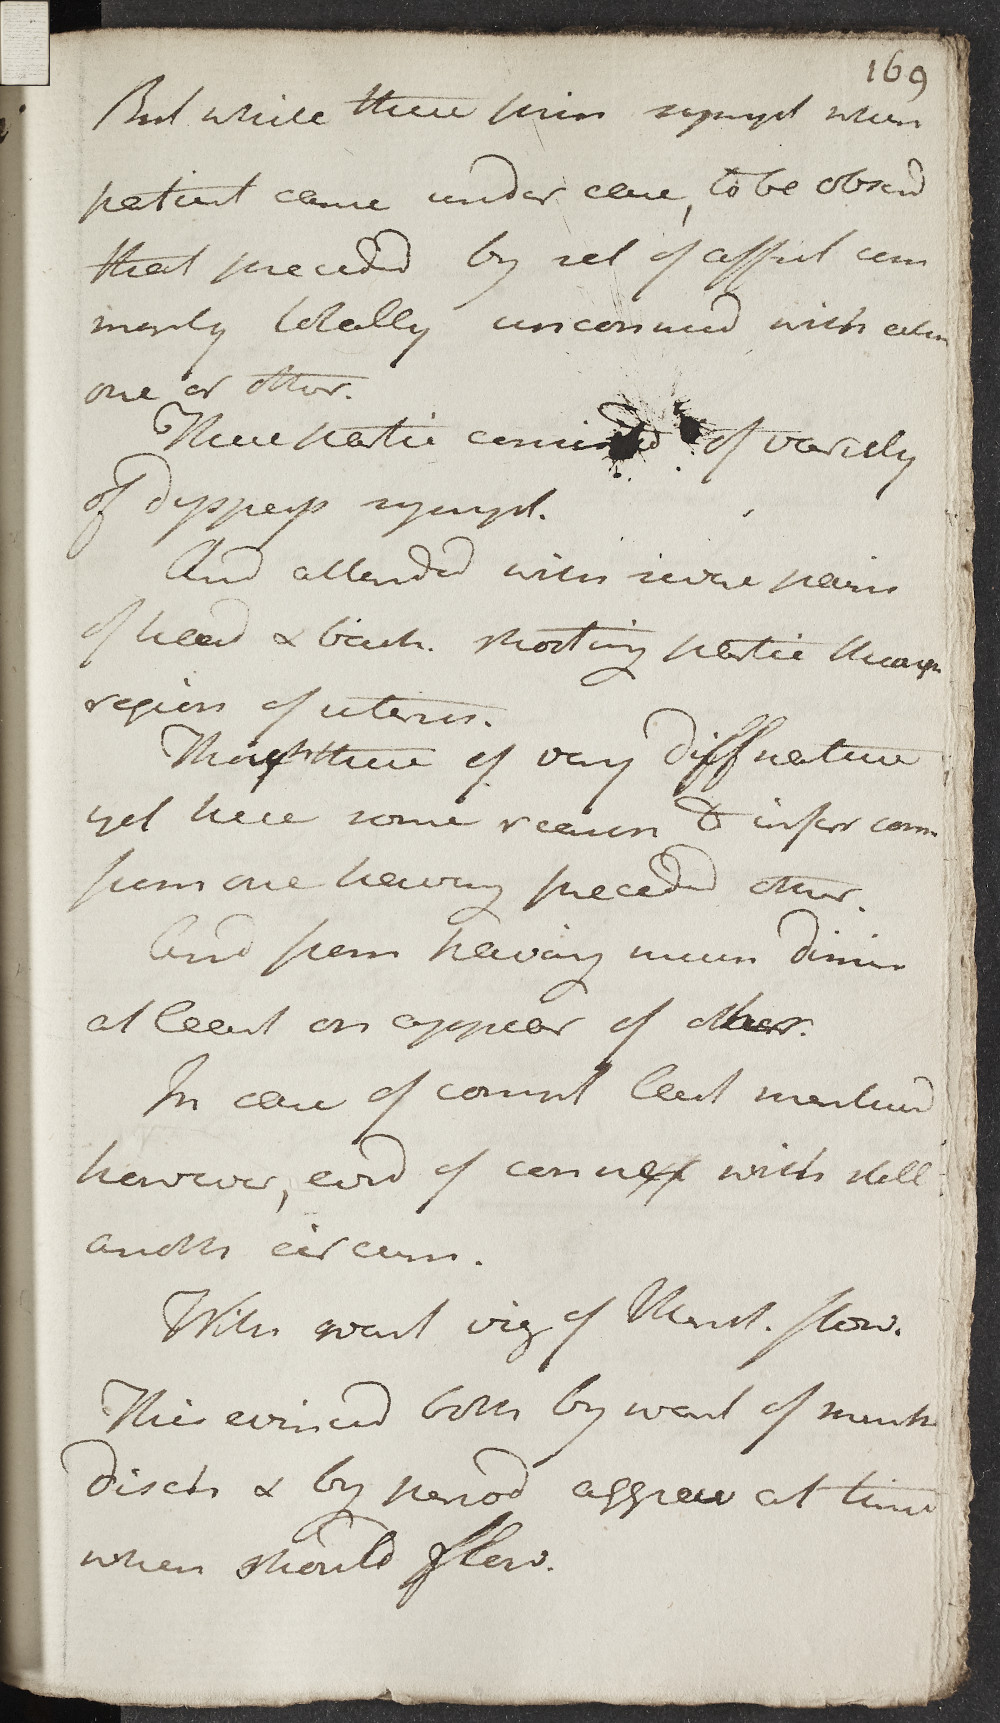 169
But while these prin sympt when
patient came under care, to be observd
that preceded by set of affect com
monly totally unconnected with
one or other.
These partic consisted of variety
of Dyspeps sympt.
And attended with severe pains
of head & back. shooting partic through
region of uterus.
Though these of very diff nature
yet here some reason to infer conn
from one having preceded other.
And from having much dimin
at least on appear of other.
In case of compt least
however, evid of connex with still
anoth circum.
With want vig of Menst. flow.
This evinced both by want of menst
disch & by period aggrav at time
when should flow.